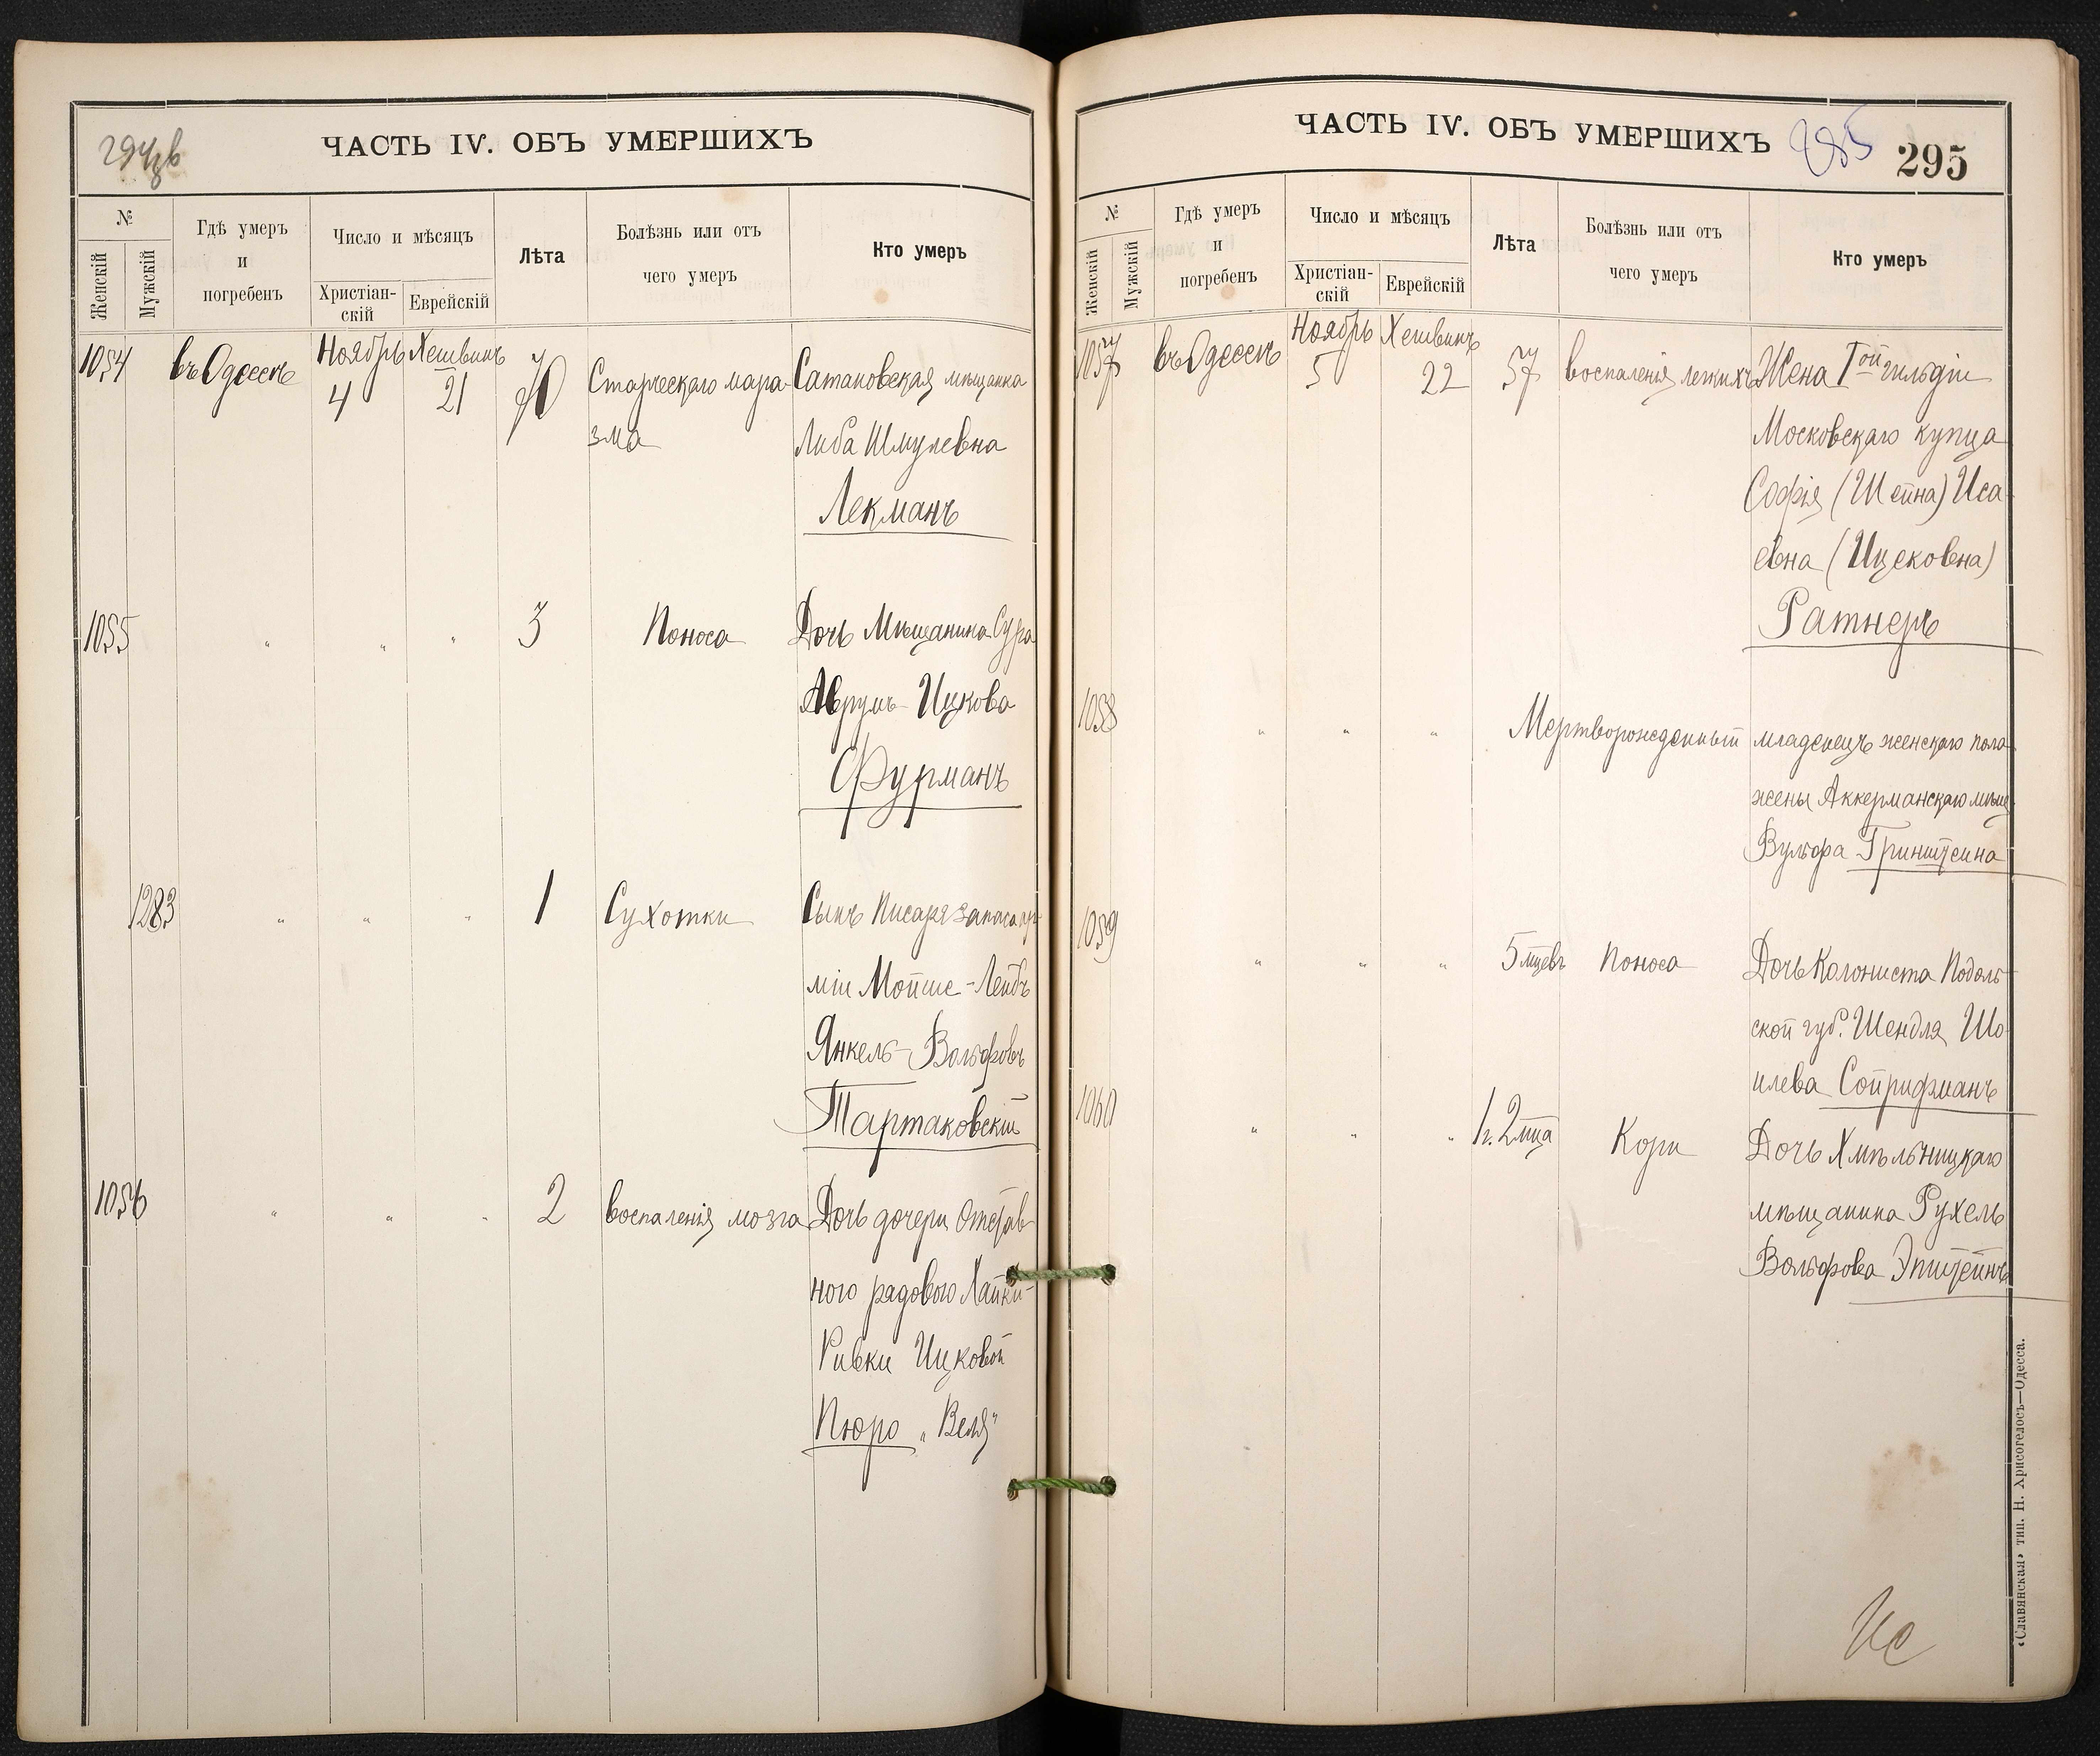 ЧАСТЬ IV. ОБЪ УМЕРШИХЪ
№
Женскій
Мужскій
Гдѣ умеръ
и
погребенъ
Число и мѣсяцъ
Христіан-
скій
Еврейскій
Лѣта
Болѣзнь или отъ
чего умеръ
Кто умеръ
1054 въ Одессѣ Ноябрь 4 Хешвинъ 21 70 Старческаго мара- Сатановская мѣщанка
зма Либа Шмулевна
Лекманъ
1055 " " " 3 Поноса Дочь Мѣщанина Сура
Аврумъ-Ицкова
Фурманъ
1283 " " " 1 Сухотки Сынъ Писаря запаса ар-
міи Мойше-Лейбъ
Янкель-Вольфовъ
Тартаковскій
1056 " " " 2 воспаленія мозга Дочь дочери Отстав-
ного рядового Хайки-
Ривки Ицковой
Пюро „Веля"
ЧАСТЬ IV. ОБЪ УМЕРШИХЪ 295 295
№
Женскій
Мужскій
Гдѣ умеръ
и
погребенъ
Число и мѣсяцъ
Христіан-
скій
Еврейскій
Лѣта
Болѣзнь или отъ
чего умеръ
Кто умеръ
1057 въ Одессѣ Ноябрь 5 Хешвинъ 22 57 воспаленія легкихъ Жена Iой гильдіи
Московскаго купца
Софія (Шейна) Иса-
евна (Ицековна)
Ратнеръ
1058 " " " Мертворожденный младенецъ женскаго пола
жены Аккерманскаго мѣщ.
Вульфа Гринштейна
1059 " " " 5 мцевъ Поноса Дочь Колониста Подоль-
ской губ. Шендля Шо-
илева Сойрифманъ
1060 " " " 1 г. 2 мца Кори Дочь Хмѣльницкаго
мѣщанина Рухель
Вольфова Эпштейнъ
«Славянская» тип. Н. Хрисогелосъ—Одесса.